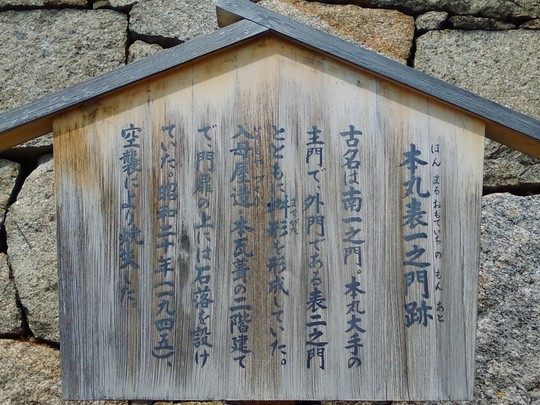 本丸表一之門跡
ほんまるおもていちのもんあと
古名は南一之門。本丸大手の
主門で、外門である表二之門
とともに枡形を形成していた。
ますがた
入母屋造、本瓦葺の二階建て
で、門扉の上には石落を設け
ていた。昭和二十年(一九四五)、
空襲により焼失した。